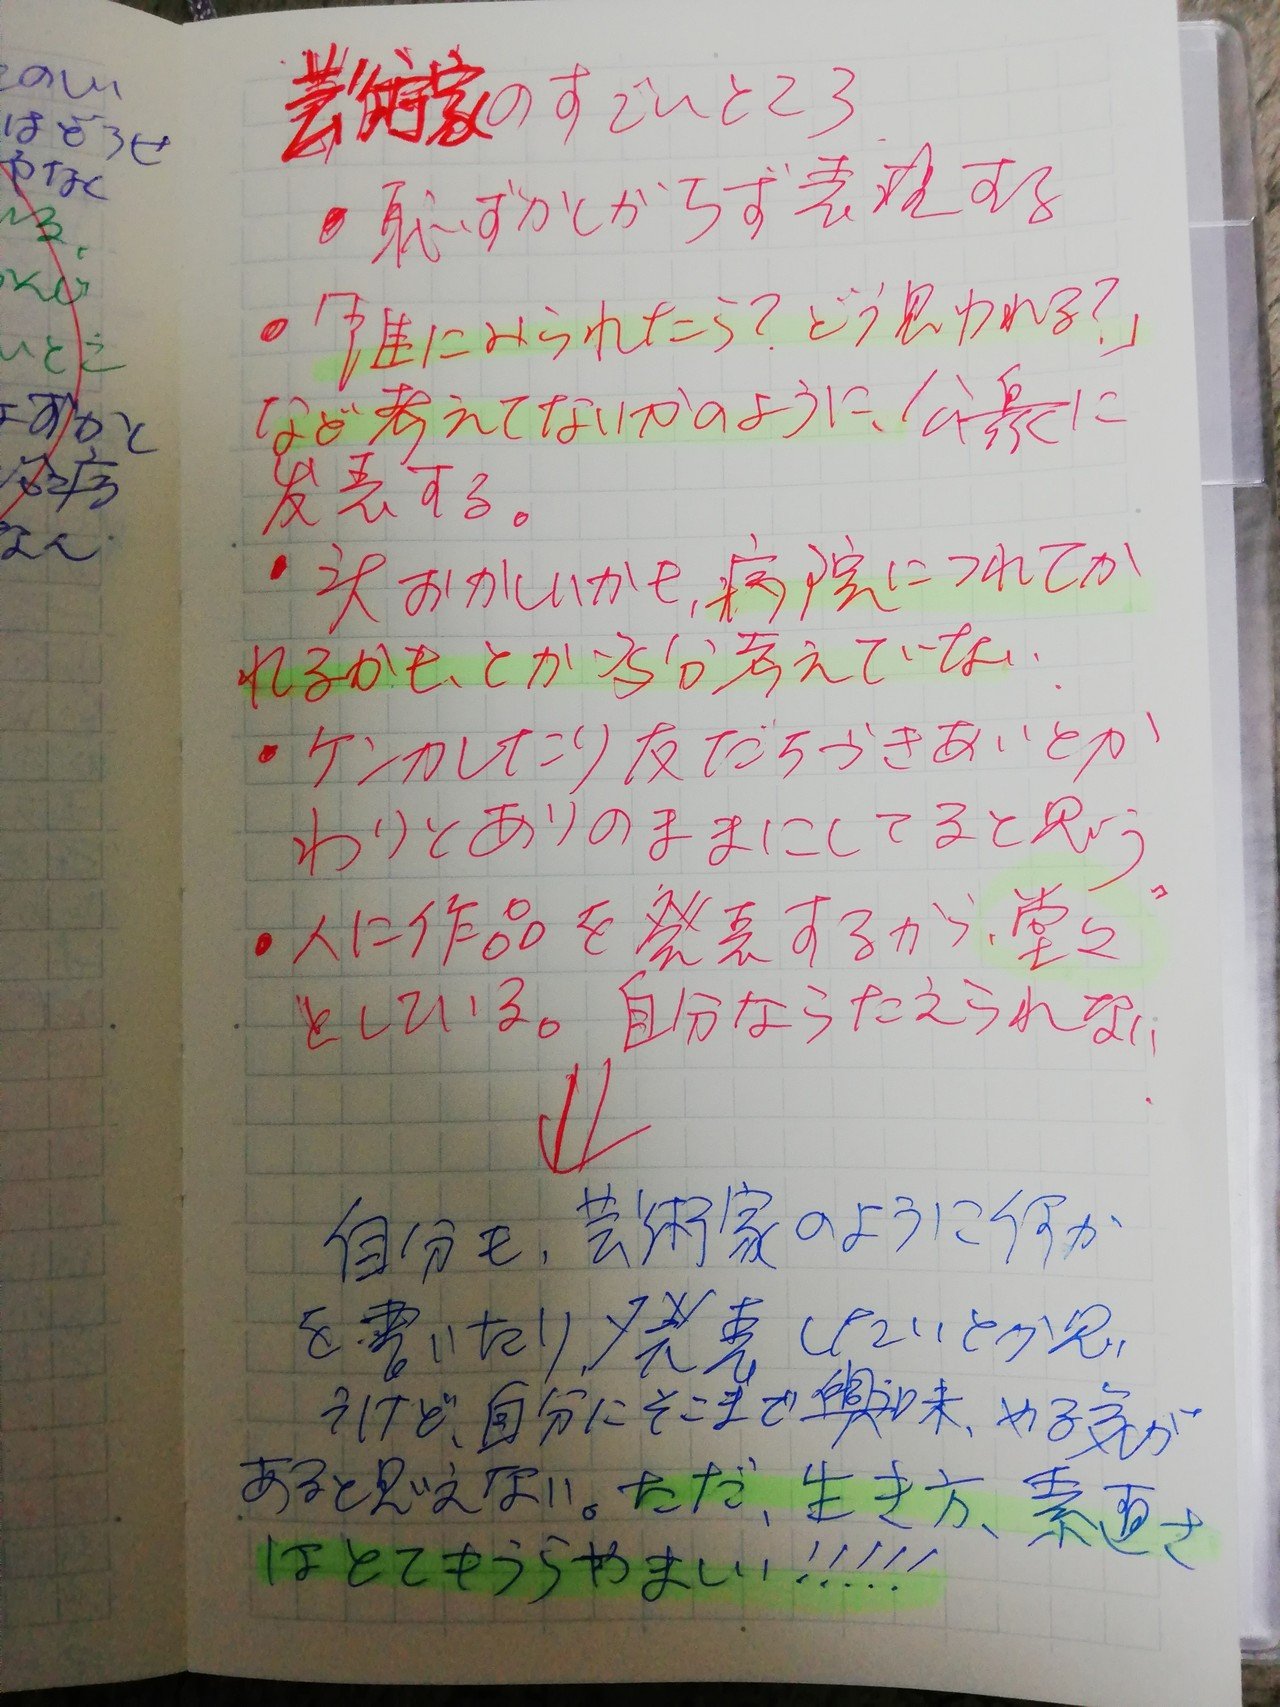 とのしい
はどうせ
やなく
いる、
いとこ
なずかし
芸術家のすごいところ
・恥ずかしがらず表現する
・「誰にみられたら？どう思われる？」
など考えてないかのように、公衆に
発表する。
・頭おかしいかも、病院につれてか
れるかも、とか多分考えていない.
・ケンカしたり友だちづきあいとか
わりとありのままにしてると思う
・人に作品を発表するから、堂々
としている。自分ならたえられない
自分も、芸術家のように何か
を書いたり、発表したいとか思
うけど、自分にそこまで興味、やる気が
あると思えない。ただ、生き方、素直さ
はとてもうらやましい!!!!!